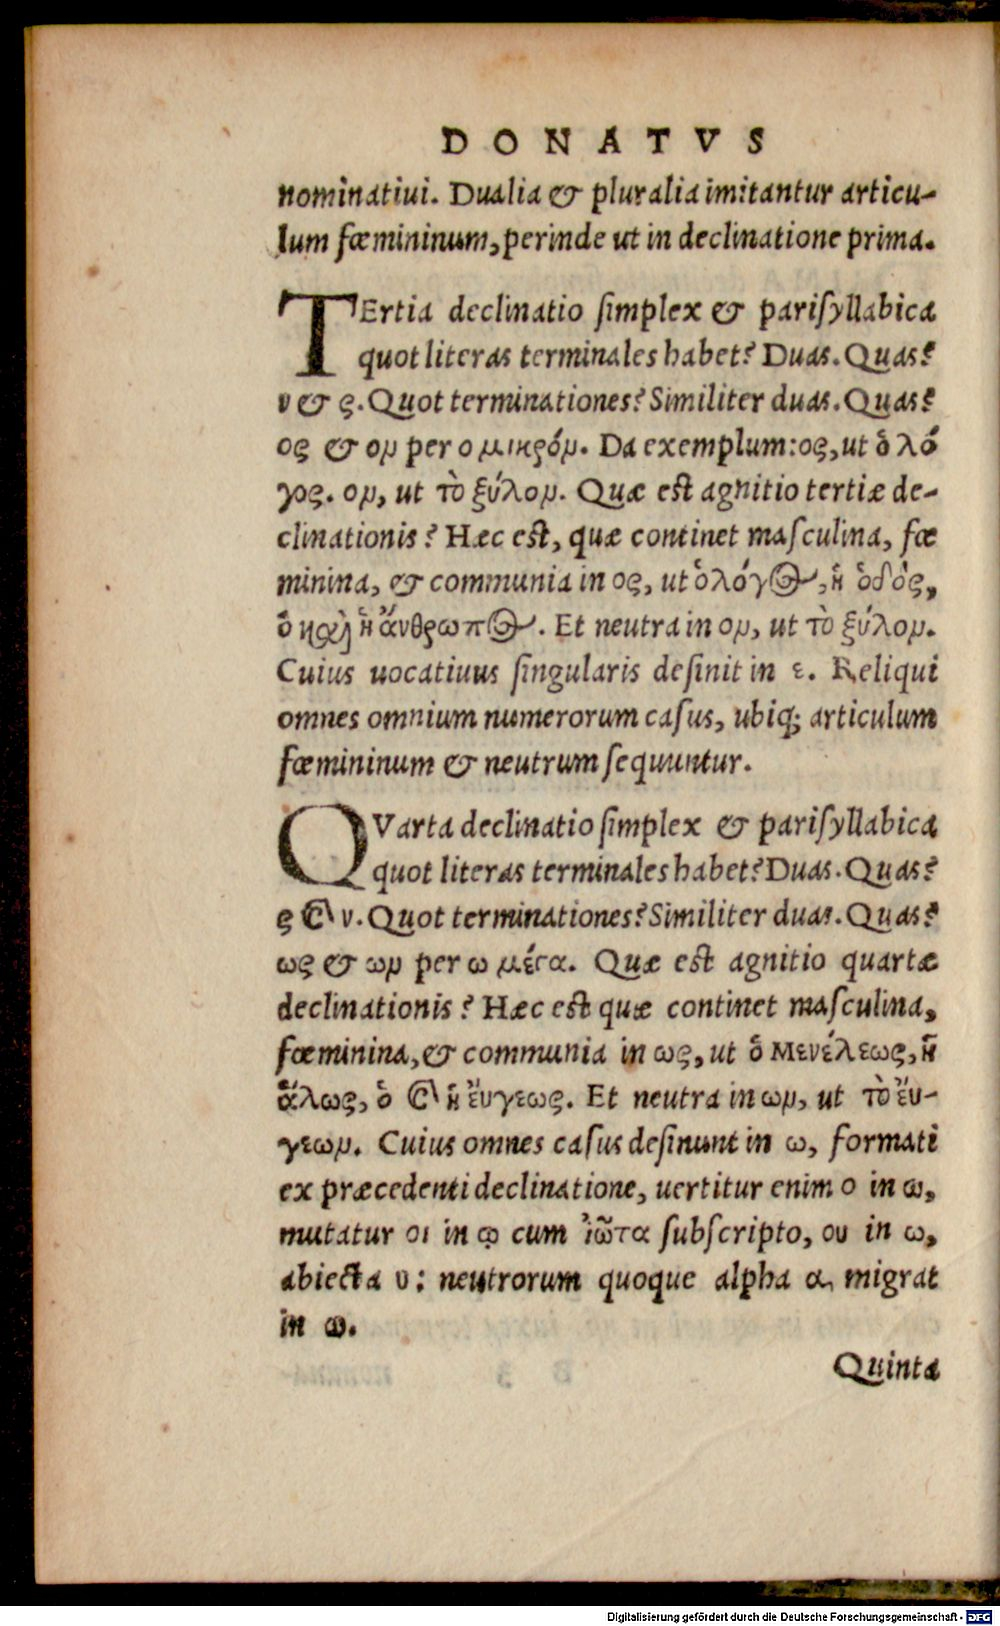 DONATVS
nominatiui. Dualia & pluralia imitantur articu-
lum fœmininum, perinde ut in declinatione prima.
TErtia declinatio ſimplex & pariſyllabica
quot literas terminales habet? Duas. Quas?
ν & ς. Quot terminationes? Similiter duas. Quas?
ος & ον per ο μικρόν. Da exemplum: ος, ut ὁ λό
γος. ον, ut τὸ ξύλον. Quæ est agnitio tertiæ de-
clinationis? Hæc est, quæ continet maſculina, fœ
minina, & communia in ος, ut ὁ λόγος, ἡ ὁδὸς,
ὁ καὶ ἡ ἄνθρωπος. Et neutra in ον, ut τὸ ξύλον.
Cuius uocatiuus ſingularis deſinit in ε. Reliqui
omnes omnium numerorum caſus, ubiq; articulum
fœmininum & neutrum ſequuntur.
QVarta declinatio ſimplex & pariſyllabica
quot literas terminales habet? Duas. Quas?
ς & ν. Quot terminationes? Similiter duas. Quas?
ως & ων per ω μέγα. Quæ est agnitio quartæ
declinationis? Hæc est quæ continet maſculina,
fœminina, & communia in ως, ut ὁ Μενέλεως, ἡ
ἅλως, ὁ & ἡ ἔυγεως. Et neutra in ων, ut τὸ ἔυ-
γεων. Cuius omnes caſus deſinunt in ω, formati
ex præcedenti declinatione, uertitur enim ο in ω,
mutatur οι in ῳ cum ἰῶτα ſubſcripto, ου in ω,
abiecta υ: neutrorum quoque alpha α, migrat
in ω.
Quinta
Digitalisierung gefördert durch die Deutsche Forschungsgemeinschaft - DFG